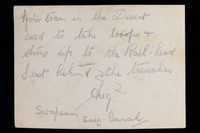 Motor Tram in the Desert
used to take troops &
stores up to the Rail-head
just behind the trenches
Aug
Serapeum
Suez Canal